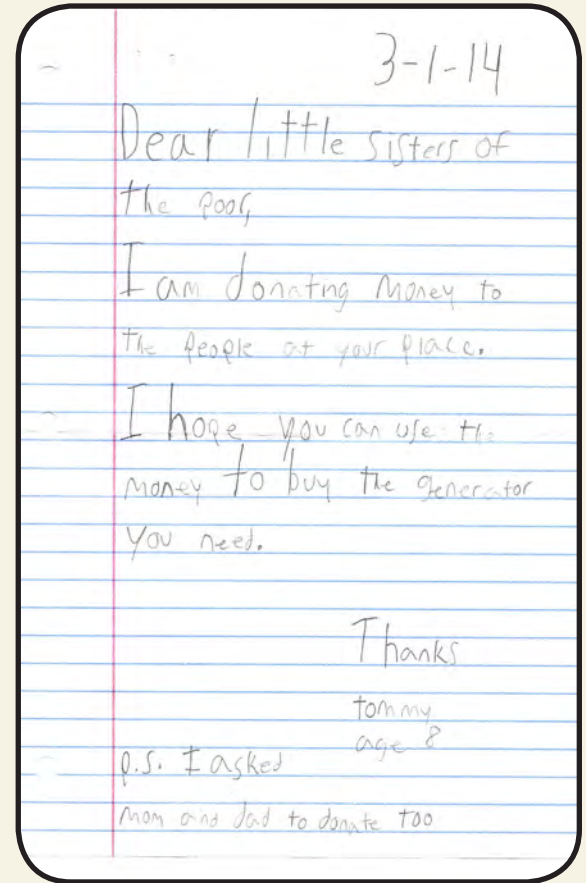 3-1-14
Dear little sisters of
the poor,
I am donating money to
the people at your place.
I hope you can use the
money to buy the generator
you need.
Thanks
tommy
age 8
p.s. I asked
mom and dad to donate too